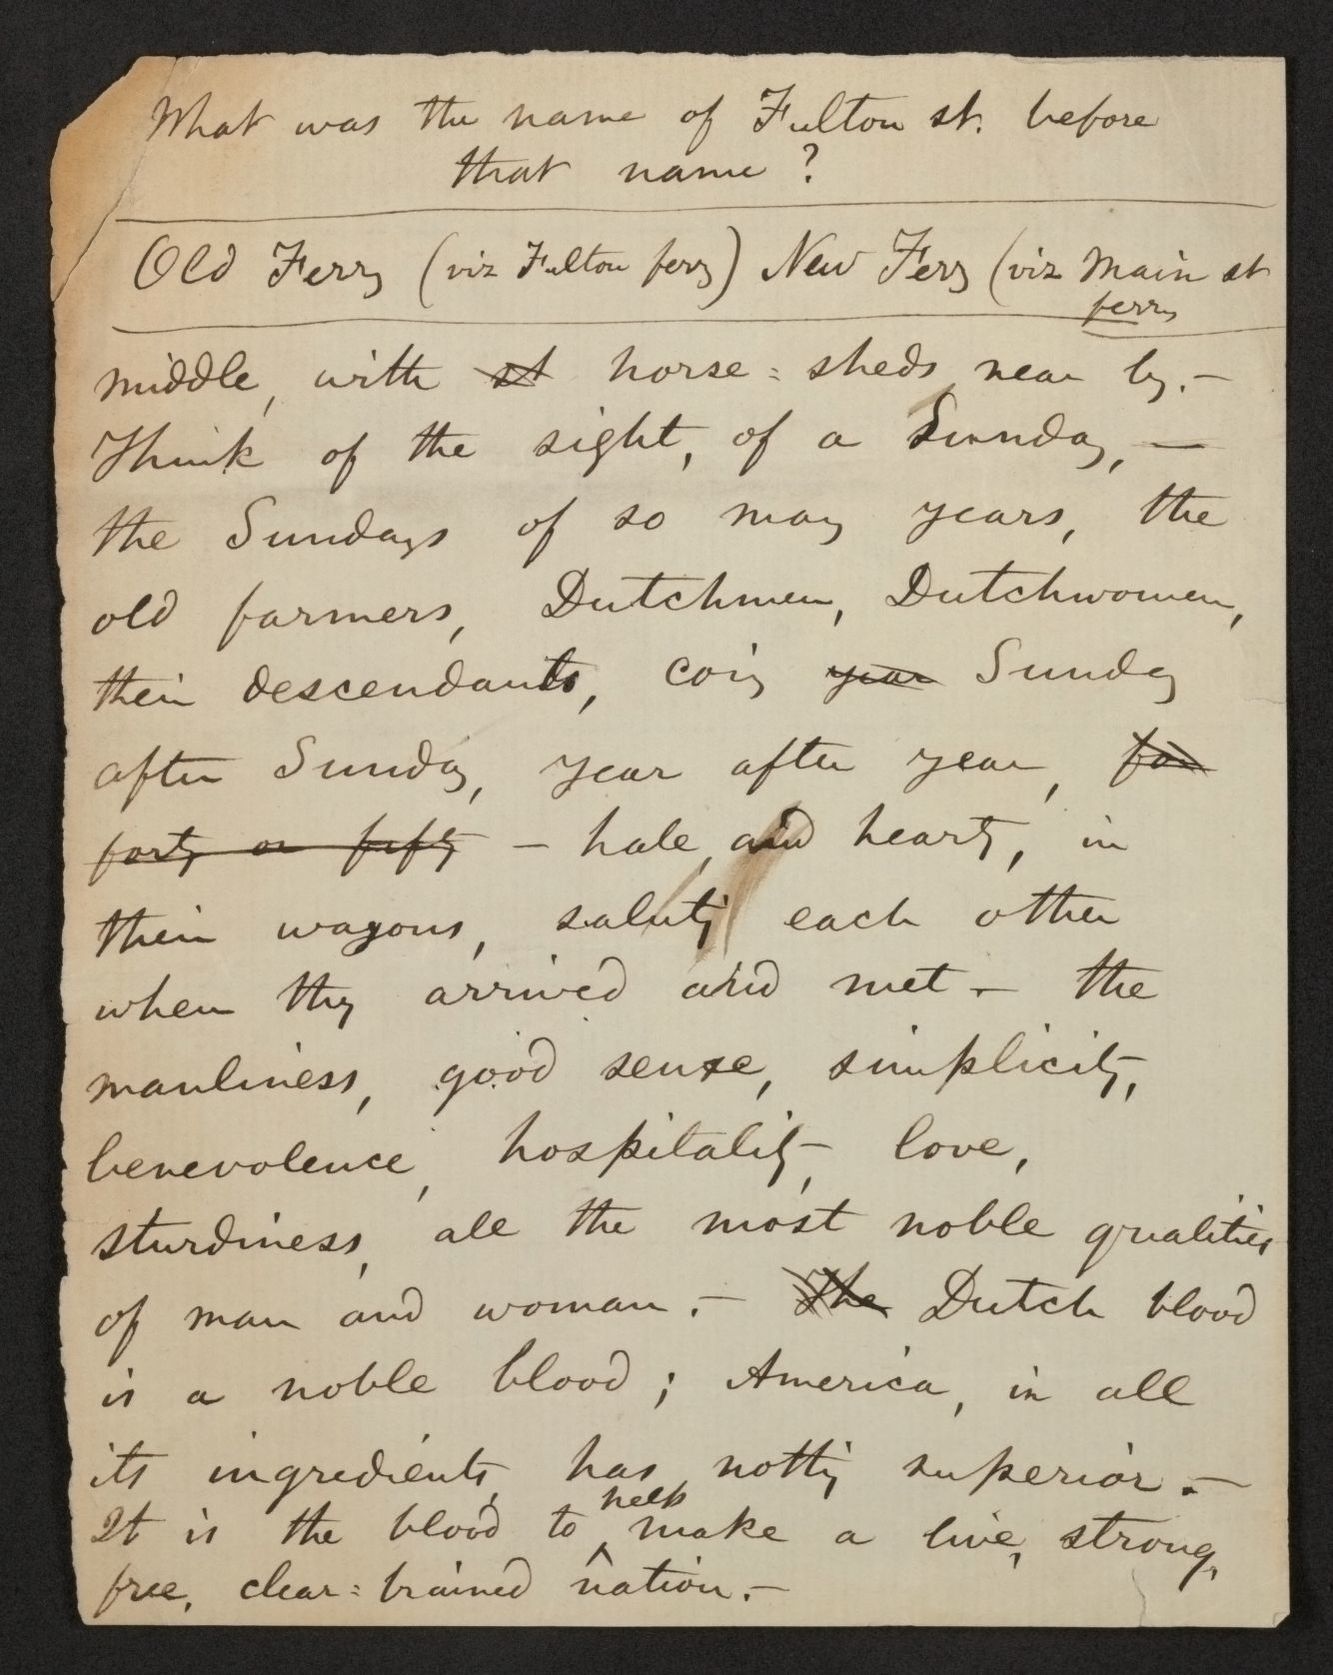 What was the name of Fulton st. before
that name?
Old Ferry (viz Fulton ferry) New Ferry (viz Main st
ferry
middle, with st horse-sheds near by.—
Think of the sight, of a Sunday,—
the Sundays of so many years, the
old farmers, Dutchmen, Dutchwomen,
their descendants, coming year Sunday
after Sunday, year after year, for
forty or fifty – hale, and hearty, in
their wagons, saluting each other
when they arrived and met – the
manliness, good sense, simplicity,
benevolence, hospitality, love,
sturdiness, all the most noble qualities
of man and woman.— The Dutch blood
is a noble blood; America, in all
its ingredients, has nothing superior.—
It is the blood to help make a live, strong,
free, clear-brained nation.—